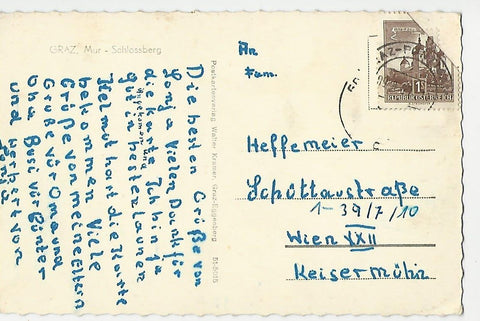 GRAZ, Mur - Schlossberg
Die besten Grüße von
Sonja Vielen Dank für
die Karte Ich bin ja
gut
heimgekommen
Helmut hart die Karte
bekommen Viele
Grüße von meine Eltern
Größe vor Oma und
Oha Busi vür Günter
und Herbert von
Sonja
Postkartenverlag Walter Kramer, Graz-Eggenberg 51-5015
An
Fam.
Heffemeier
Schüttaustraße
1-39/7/10
Wien XXII
Keisermühn
1S
REPUBLIK ÖSTERREICH